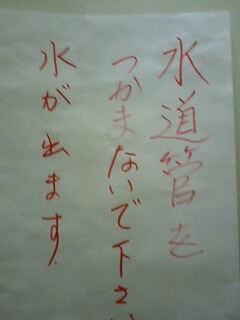 水道管を
つかまないで下さい
水が出ます